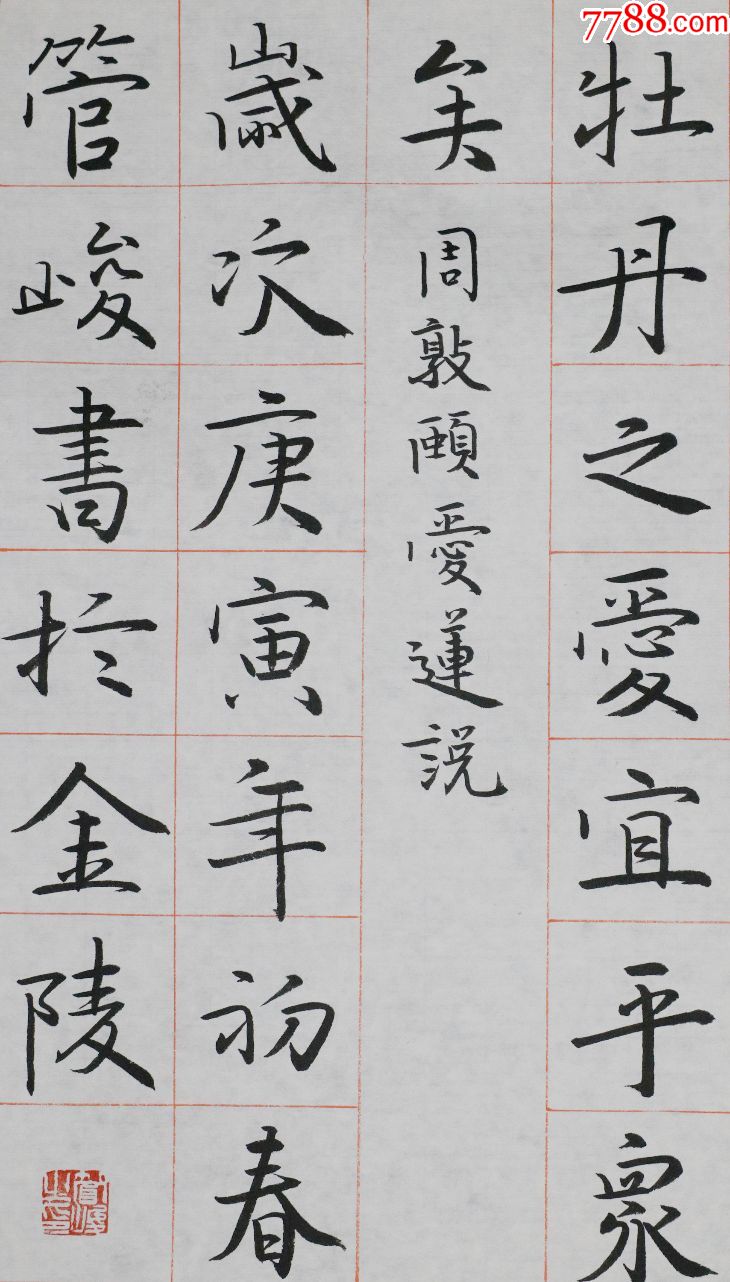 7788.com
牡丹之愛宜乎眾
矣
周敦頤愛蓮説
歲次庚寅年初春
管峻書於金陵